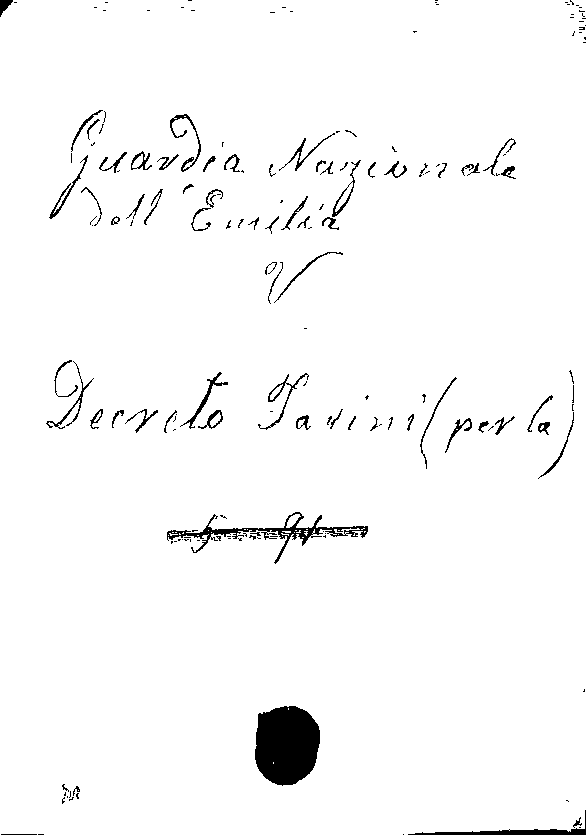 Guardia Nazionale
dell'Emilia
V
Decreto Farini (per la)
5 91